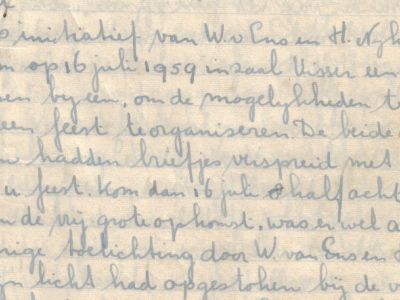 initiatief van W. v Ens en H. Nyk
op 16 juli 1959 in zaal Visser een
en by een, om de mogelykheden te
een feest te organiseren. De beide
hadden briefjes verspreid met
u feest. Kom dan 16 juli half acht
de vry grote opkomst, was er wel a
rige toelichting door W. van Ens en
licht had opgestoken by de v